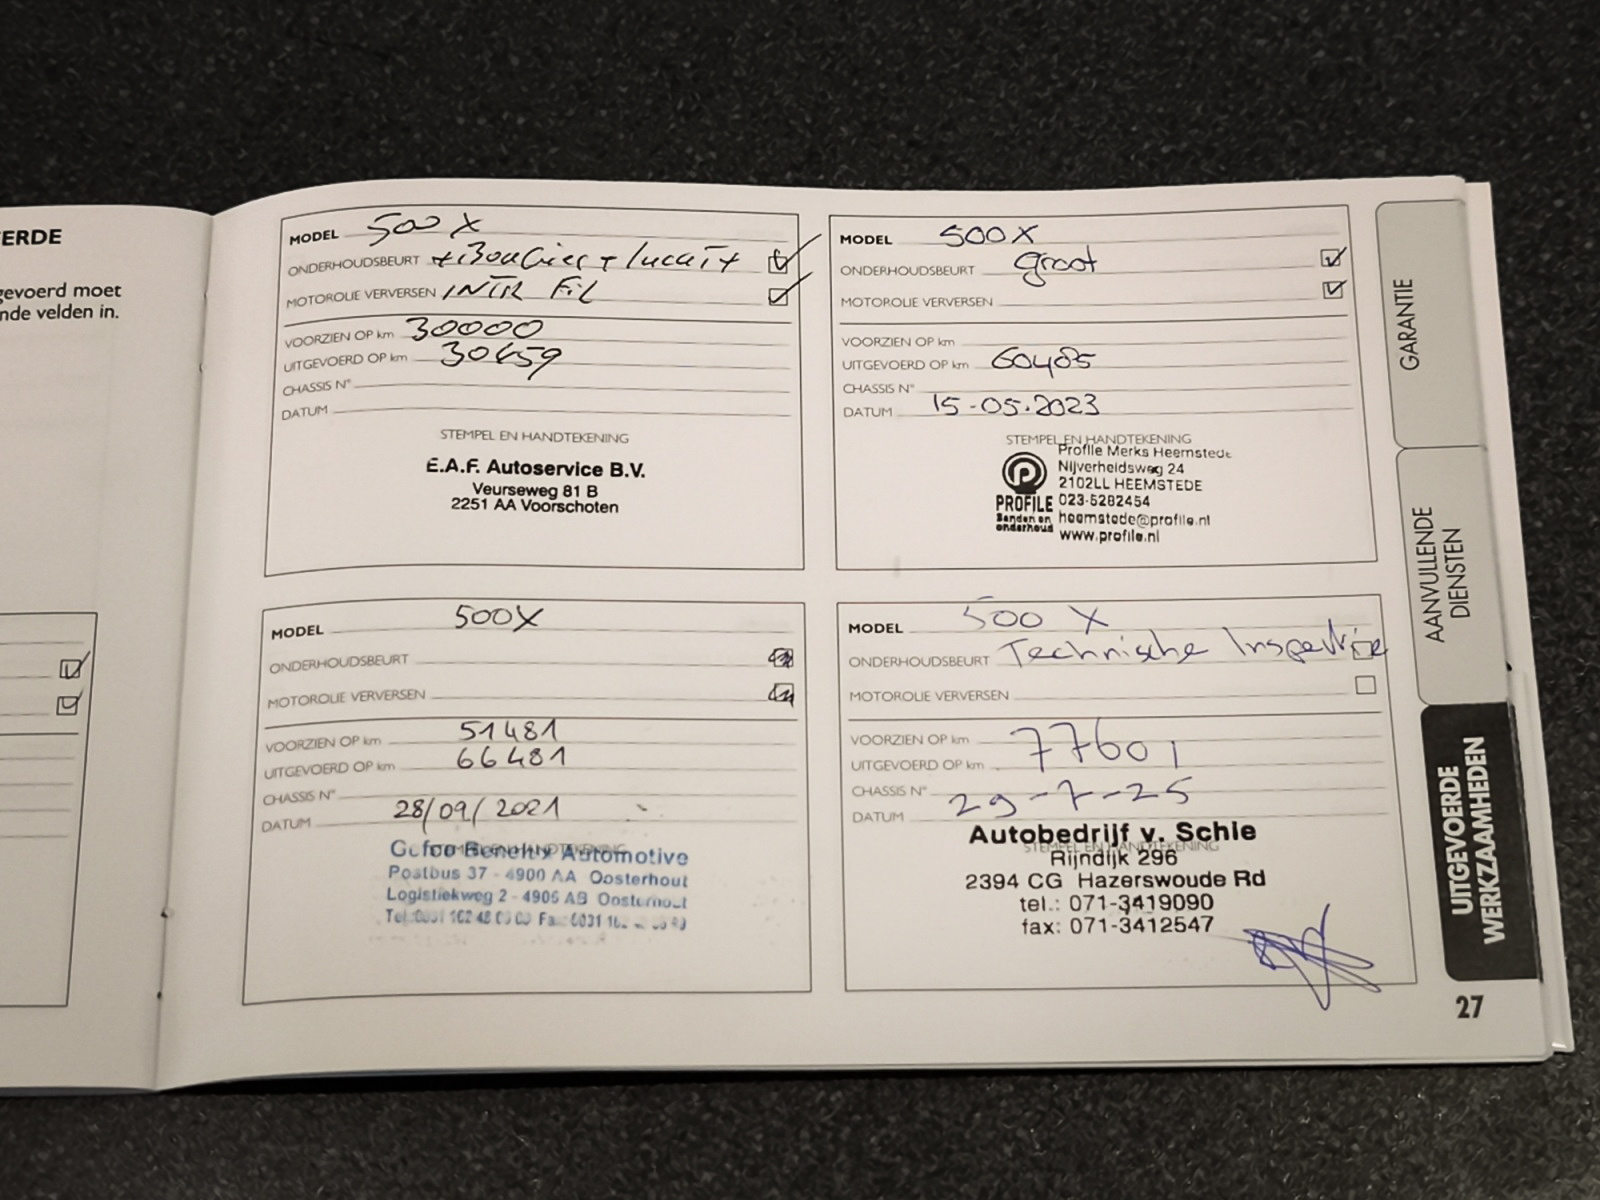 ERDE
gevoerd moet
nde velden in.
MODEL 500 X
ONDERHOUDSBEURT + Bougies + lucht
MOTOROLIE VERVERSEN INTR FiL
VOORZIEN OP km 30000
UITGEVOERD OP km 30459
CHASSIS N°
DATUM
STEMPEL EN HANDTEKENING
E.A.F. Autoservice B.V.
Veurseweg 81 B
2251 AA Voorschoten
MODEL 500X
ONDERHOUDSBEURT groot
MOTOROLIE VERVERSEN
VOORZIEN OP km
UITGEVOERD OP km 60485
CHASSIS N°
DATUM 15-05.2023
STEMPEL EN HANDTEKENING
Profile Merks Heemstede
Nijverheidsweg 24
2102LL HEEMSTEDE
PROFILE 023-5282454
Banden en heemstede@profile.nl
onderhoud www.profile.nl
MODEL 500X
ONDERHOUDSBEURT
MOTOROLIE VERVERSEN
VOORZIEN OP km 51481
UITGEVOERD OP km 66481
CHASSIS N°
DATUM 28/09/2021
STEMPEL EN HANDTEKENING
Gefco Benelux Automotive
Postbus 37 - 4900 AA Oosterhout
Logistiekweg 2 - 4906 AB Oosterhout
MODEL 500 X
ONDERHOUDSBEURT Technische Inspectie
MOTOROLIE VERVERSEN
VOORZIEN OP km 77601
UITGEVOERD OP km
CHASSIS N°
DATUM 29-7-25
STEMPEL EN HANDTEKENING
Autobedrijf v. Schie
Rijndijk 296
2394 CG Hazerswoude Rd
tel.: 071-3419090
fax: 071-3412547
GARANTIE
AANVULLENDE
DIENSTEN
UITGEVOERDE
WERKZAAMHEDEN
27